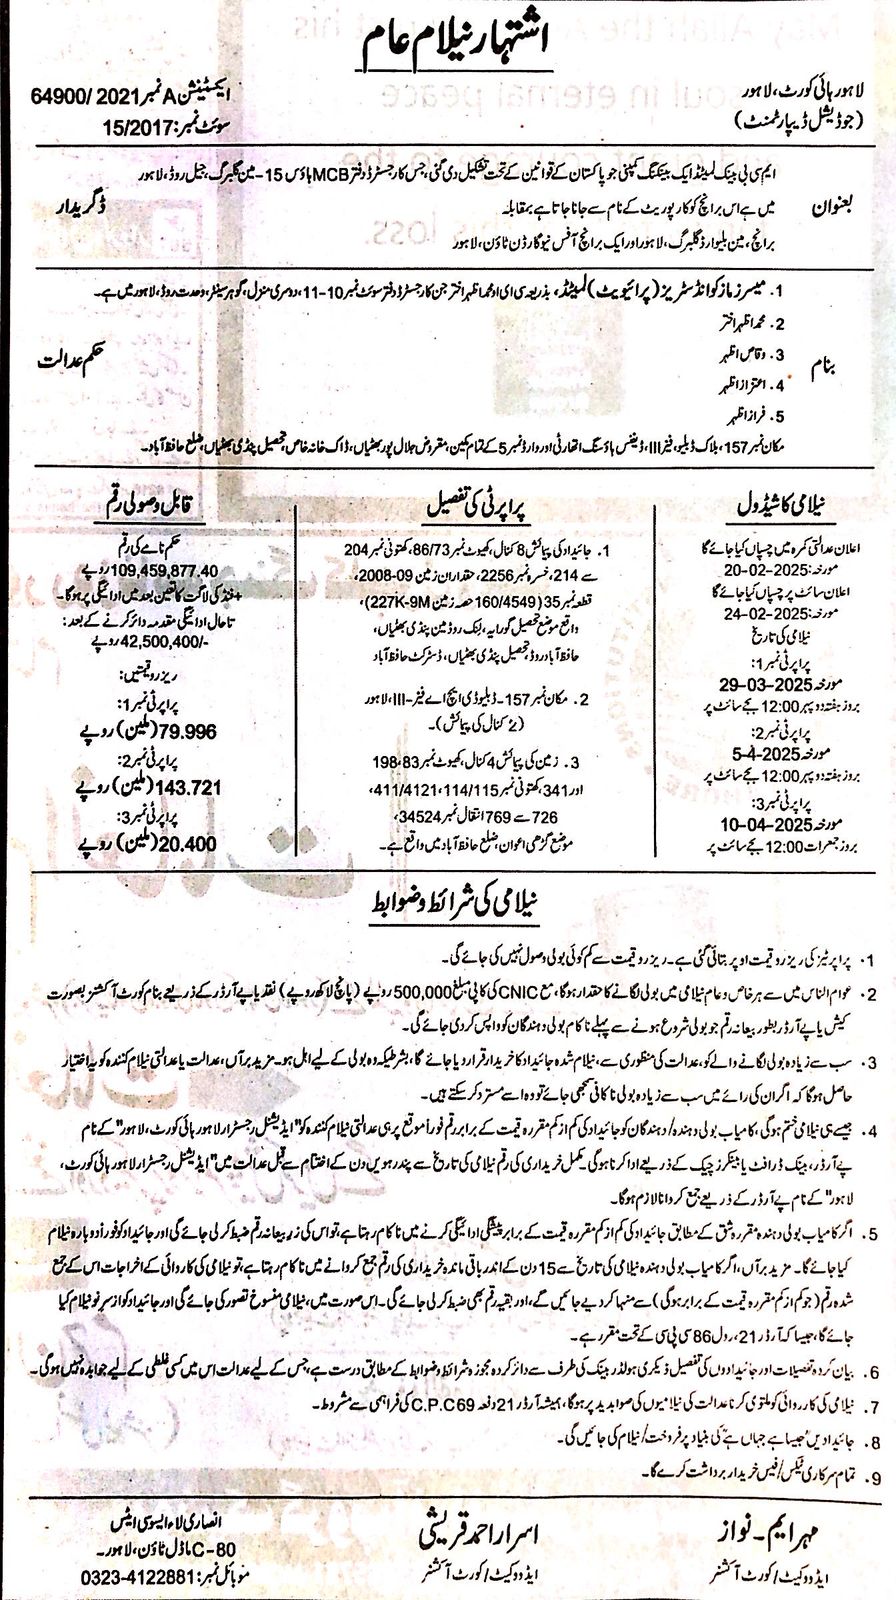 اشتہار نیلام عام
لاہور ہائی کورٹ، لاہور
(جوڈیشل ڈیپارٹمنٹ)
ایکسٹینشن A نمبر 64900/2021
سوئٹ نمبر: 15/2017
بعنوان
ایم سی بی بینک لمیٹڈ ایک بینکنگ کمپنی جو پاکستان کے قوانین کے تحت تشکیل دی گئی، جس کا رجسٹرڈ دفتر MCB ہاؤس 15- مین گلبرگ، جیل روڈ، لاہور
میں ہے اس برانچ کو کارپوریٹ کے نام سے جانا جاتا ہے بمقابلہ
برانچ، مین بلیوارڈ گلبرگ، لاہور اور ایک برانچ آفس نیو گارڈن ٹاؤن، لاہور
ڈگریدار
بنام
1. میسرز ماز کو انڈسٹریز (پرائیویٹ) لمیٹڈ، بذریعہ سی ای او محمد اظہر اختر جن کا رجسٹرڈ دفتر سوئٹ نمبر 10-11، دوسری منزل، گوہر سینٹر، وحدت روڈ، لاہور میں ہے۔
2. محمد اظہر اختر
3. وقاص اظہر
4. اعتزاز اظہر
5. فراز اظہر
مکان نمبر 157، بلاک ڈبلیو، فیز III، ڈیفنس ہاؤسنگ اتھارٹی اور وارڈ نمبر 5 کے تمام مکین، مقروض جلال پور بھٹیاں، ڈاک خانہ خاص، تحصیل پنڈی بھٹیاں، ضلع حافظ آباد۔
حکم عدالت
نیلامی کا شیڈول
اعلان عدالتی کمرہ میں چسپاں کیا جائے گا
مورخہ: 20-02-2025
اعلان سائٹ پر چسپاں کیا جائے گا
مورخہ: 24-02-2025
نیلامی کی تاریخ
پراپرٹی نمبر 1:
مورخہ 29-03-2025
بروز ہفتہ دوپہر 12:00 بجے سائٹ پر
پراپرٹی نمبر 2:
مورخہ 5-4-2025
بروز ہفتہ دوپہر 12:00 بجے سائٹ پر
پراپرٹی نمبر 3:
مورخہ 10-04-2025
بروز جمعرات 12:00 بجے سائٹ پر
پراپرٹی کی تفصیل
1. جائیداد کی پیمائش 8 کنال، کھیوٹ نمبر 86/73، کھتونی نمبر 204
سے 214، خسرہ نمبر 2256، حقداران زمین 09-2008،
قطعہ نمبر 35 (160/4549 حصہ زمین 227K-9M)،
واقع موضع تحصیل گورایہ، لنک روڈ مین پنڈی بھٹیاں،
حافظ آباد روڈ، تحصیل پنڈی بھٹیاں، ڈسٹرکٹ حافظ آباد
2. مکان نمبر 157- ڈبلیو ڈی ایچ اے فیز-III، لاہور
(2 کنال کی پیمائش)۔
3. زمین کی پیمائش 4 کنال، کھیوٹ نمبر 83، 198
اور 341، کھتونی نمبر 114/115، 411/4121،
726 سے 769 انتقال نمبر 34524،
موضع گڑھی اعوان، ضلع حافظ آباد میں واقع ہے۔
قابل وصولی رقم
حکم نامے کی رقم
109,459,877.40 روپے
+فنڈ کی لاگت کا تعین بعد میں ادائیگی پر ہوگا۔
تاحال ادائیگی مقدمہ دائر کرنے کے بعد:
42,500,400/- روپے
ریزرو قیمتیں:
پراپرٹی نمبر 1:
79.996 (ملین) روپے
پراپرٹی نمبر 2:
143.721 (ملین) روپے
پراپرٹی نمبر 3:
20.400 (ملین) روپے
نیلامی کی شرائط و ضوابط
1. پراپرٹیز کی ریزرو قیمت اوپر بتائی گئی ہے۔ ریزرو قیمت سے کم کوئی بولی وصول نہیں کی جائے گی۔
2. عوام الناس میں سے ہر خاص و عام نیلامی میں بولی لگانے کا حقدار ہوگا، مع CNIC کی کاپی مبلغ 500,000 روپے (پانچ لاکھ روپے) نقد یا پے آرڈر کے ذریعے بنام کورٹ آکشنرز بصورت
کیش یا پے آرڈر بطور بیعانہ رقم جو بولی شروع ہونے سے پہلے ناکام بولی دہندگان کو واپس کر دی جائے گی۔
3. سب سے زیادہ بولی لگانے والے کو، عدالت کی منظوری سے، نیلام شدہ جائیداد کا خریدار قرار دیا جائے گا، بشرطیکہ وہ بولی کے لیے اہل ہو۔ مزید برآں، عدالت یا عدالتی نیلام کنندہ کو یہ اختیار
حاصل ہوگا کہ اگر ان کی رائے میں سب سے زیادہ بولی ناکافی سمجھی جائے تو وہ اسے مسترد کر سکتے ہیں۔
4. جیسے ہی نیلامی ختم ہوگی، کامیاب بولی دہندہ/دہندگان کو جائیداد کی کم از کم مقررہ قیمت کے برابر رقم فوراً موقع پر ہی عدالتی نیلام کنندہ کو "ایڈیشنل رجسٹرار لاہور ہائی کورٹ، لاہور" کے نام
پے آرڈر، بینک ڈرافٹ یا بینکرز چیک کے ذریعے ادا کرنا ہوگی۔ مکمل خریداری کی رقم نیلامی کی تاریخ سے پندرہویں دن کے اختتام سے قبل عدالت میں "ایڈیشنل رجسٹرار لاہور ہائی کورٹ،
لاہور" کے نام پے آرڈر کے ذریعے جمع کروانا لازم ہوگا۔
5. اگر کامیاب بولی دہندہ مقررہ شق کے مطابق جائیداد کی کم از کم مقررہ قیمت کے برابر پیشگی ادائیگی کرنے میں ناکام رہتا ہے، تو اس کی زر بیعانہ رقم ضبط کر لی جائے گی اور جائیداد کو فوراً دوبارہ نیلام
کیا جائے گا۔ مزید برآں، اگر کامیاب بولی دہندہ نیلامی کی تاریخ سے 15 دن کے اندر باقی ماندہ خریداری کی رقم جمع کروانے میں ناکام رہتا ہے، تو نیلامی کی کاروائی کے اخراجات اس کے جمع
شدہ رقم (جو کم از کم مقررہ قیمت کے برابر ہوگی) سے منہا کر دیے جائیں گے، اور بقیہ رقم بھی ضبط کر لی جائے گی۔ اس صورت میں، نیلامی منسوخ تصور کی جائے گی اور جائیداد کو از سر نو نیلام کیا
جائے گا، جیسا کہ آرڈر 21، رول 86 سی پی سی کے تحت مقرر ہے۔
6. بیان کردہ تفصیلات اور جائیدادوں کی تفصیل ڈیکری ہولڈر بینک کی طرف سے دائر کردہ مجوزہ شرائط و ضوابط کے مطابق درست ہے، جس کے لیے عدالت اس میں کسی غلطی کے لیے جوابدہ نہیں ہوگی۔
7. نیلامی کی کارروائی کو ملتوی کرنا عدالت کی نیلامیوں کی صوابدید پر ہوگا، ہمیشہ آرڈر 21 دفعہ C.P.C 69 کی فراہمی سے مشروط۔
8. جائیدادیں 'جیسا ہے جہاں ہے' کی بنیاد پر فروخت/نیلام کی جائیں گی۔
9. تمام سرکاری ٹیکس/فیس خریدار برداشت کرے گا۔
مہر ایم۔ نواز
ایڈووکیٹ/کورٹ آکشنر
اسرار احمد قریشی
ایڈووکیٹ/کورٹ آکشنر
انصاری لاء ایسوسی ایٹس
80-C ماڈل ٹاؤن، لاہور۔
موبائل نمبر: 0323-4122881